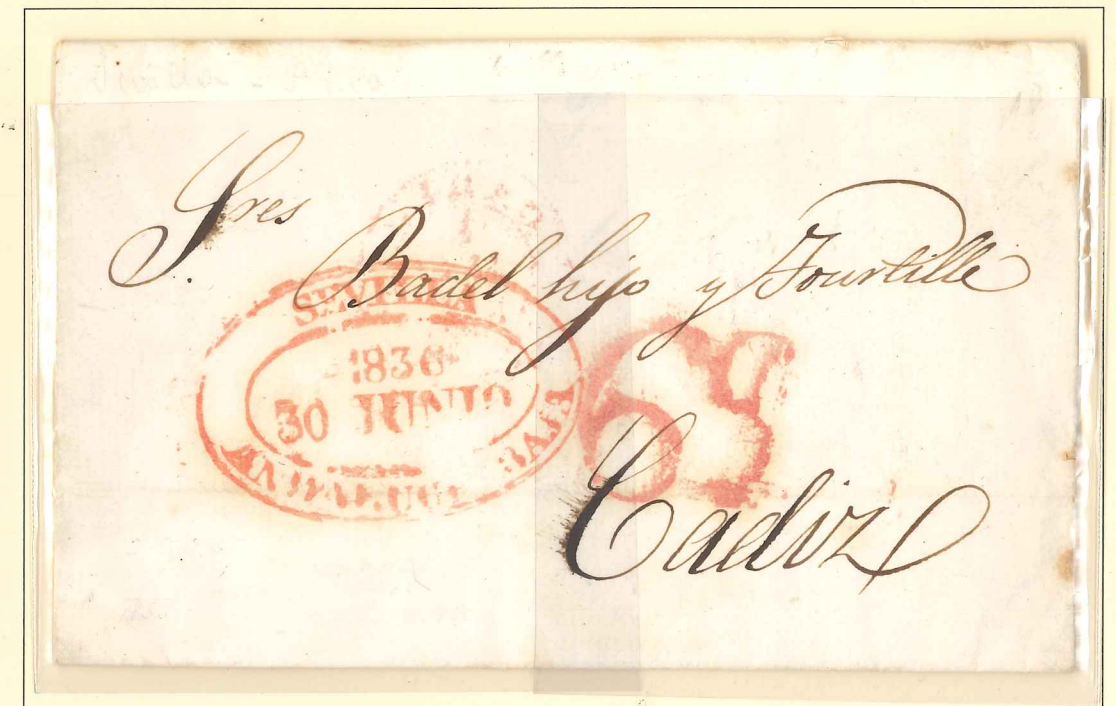 Sres
Badel hijo y Fourtille
SEVILLA
1836
30 JUNIO
ANDALUCIA BAJA
6
Cadiz